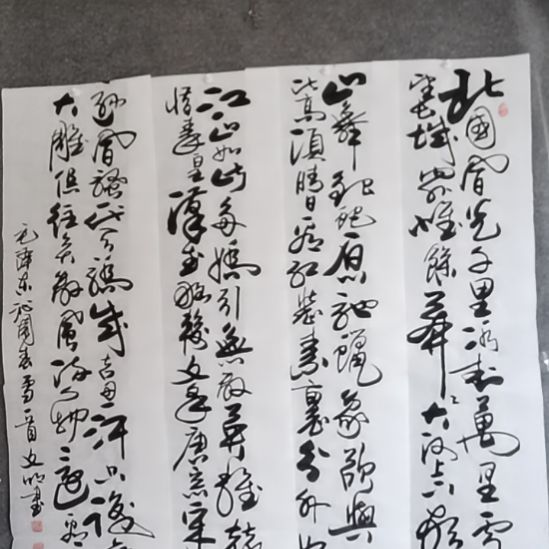 北国风光千里冰封万里雪
望长城内外惟余莽莽大河上下顿
山舞银蛇原驰蜡象欲与
比高须晴日看红装素裹分外
江山如此多娇引无数英雄竞
惜秦皇汉武略输文采唐宗宋
逊风骚一代天骄成吉思汗只
大雕俱往矣数风流人物还看
毛泽东沁园春雪一首文明书